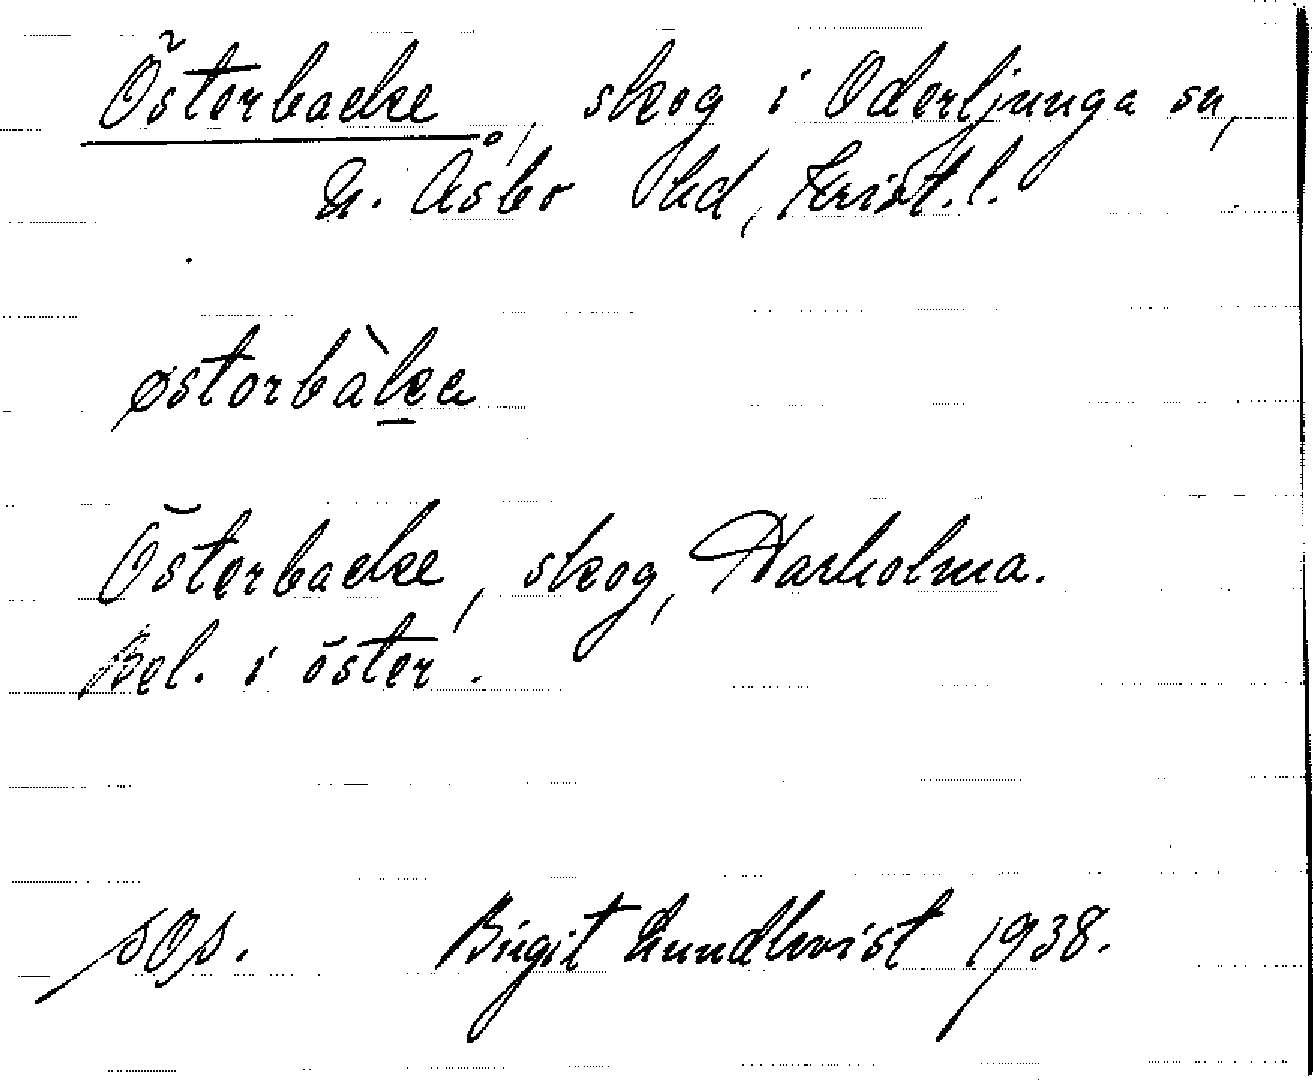 Österbacke, skog i Oderljunga sn,
N. Åsbo hd, Krist. l.
østorbàka
Österbacke, skog, Harholma.
Bel. i öster.
sOs. Birgit Lundkvist 1938.